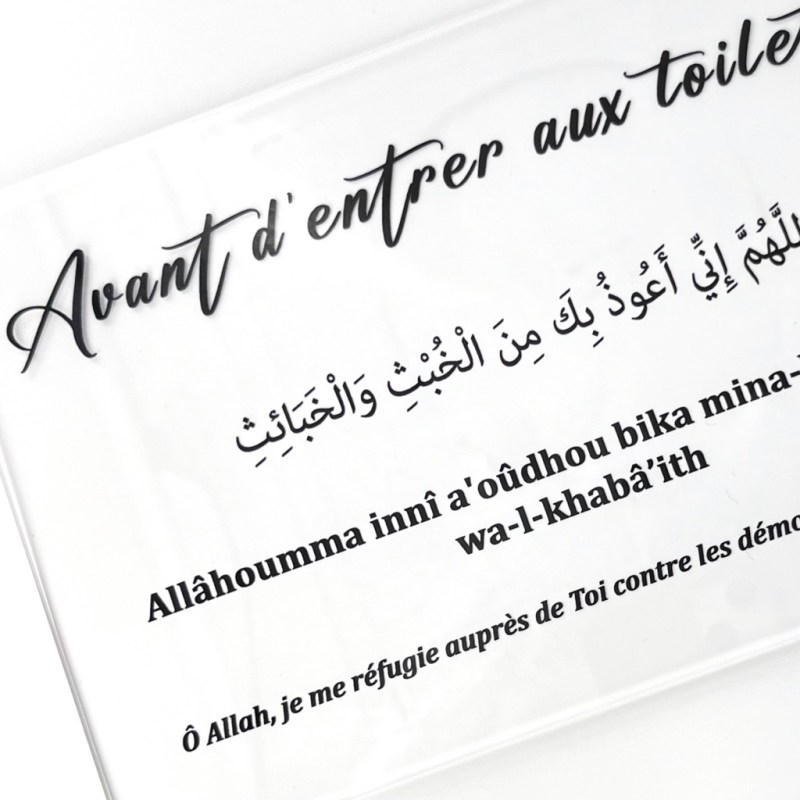 Avant d'entrer aux toilet
اللَّهُمَّ إِنِّي أَعُوذُ بِكَ مِنَ الْخُبْثِ وَالْخَبَائِثِ
Allâhoumma innî a'oûdhou bika mina-
wa-l-khabâ'ith
Ô Allah, je me réfugie auprès de Toi contre les démo